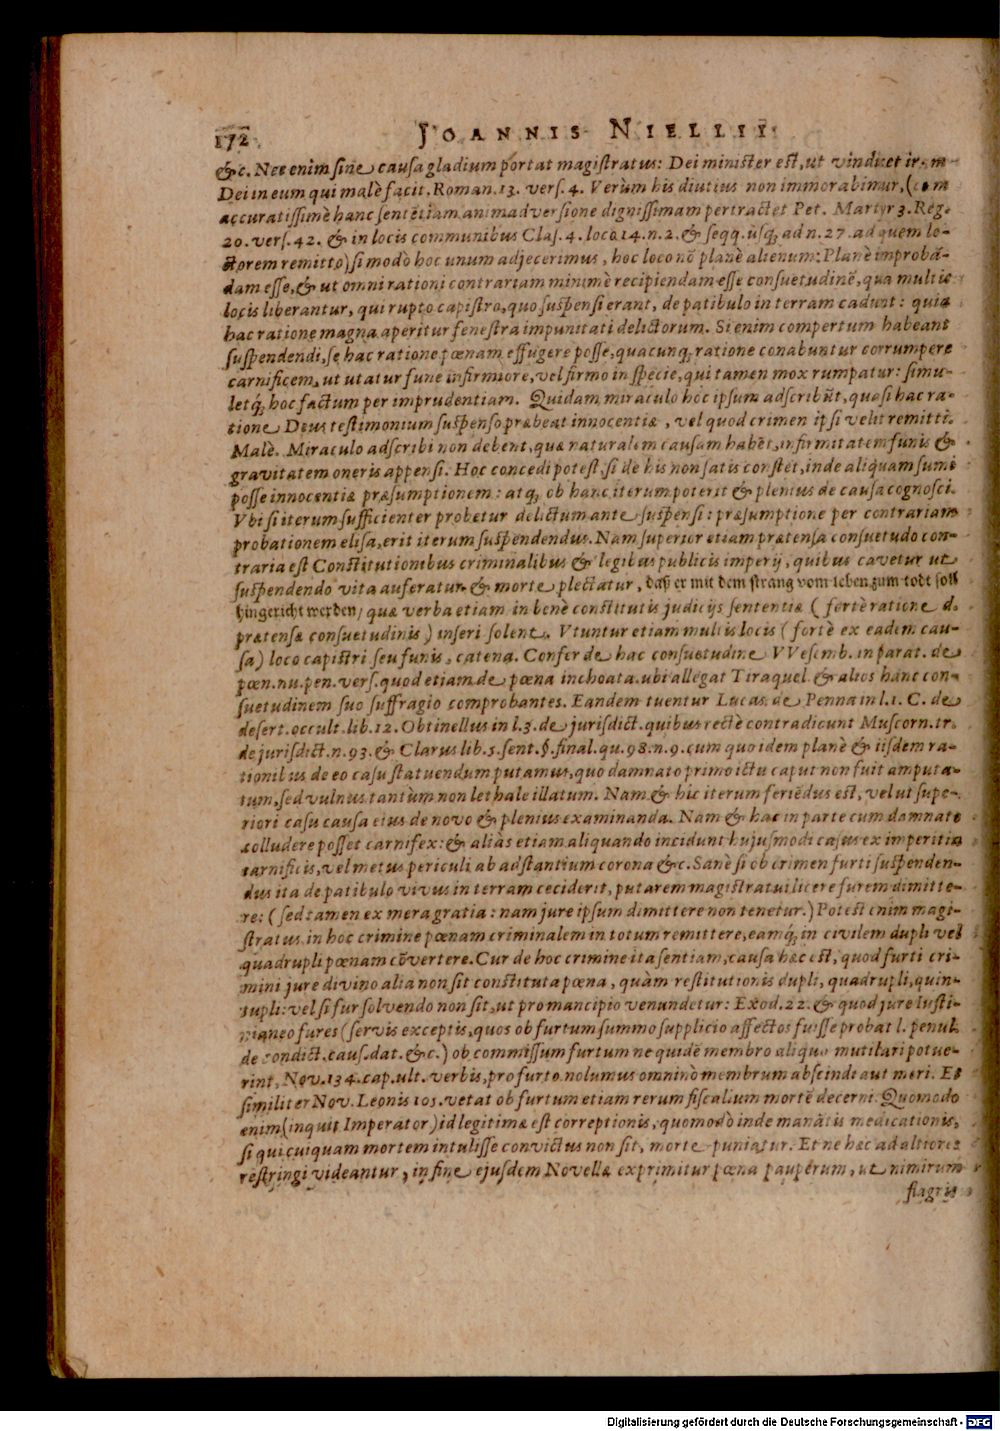 172
JOANNIS NIELLII
&c. Nec enim sine causa gladium portat magistratus: Dei minister est, ut vindicet iram
Dei in eum qui malè facit. Roman. 13. vers. 4. Verùm his diutius non immorabimur, (cum
accuratissimè hanc sententiam animadversione dignissimam pertractet Pet. Martyr 3. Reg.
20. vers. 42. & in locis communibus Clas. 4. loco 14. n. 2. & seqq. usq; ad n. 27. ad quem le-
ctorem remitto) si modò hoc unum adjecerimus, hoc loco nō planè alienum: Planè improbā-
dam esse, & ut omni rationi contrariam minimè recipiendam esse consuetudinē, qua multis
locis liberantur, qui rupto capistro, quo suspensi erant, de patibulo in terram cadunt: quia
hac ratione magna aperitur fenestra impunitati delictorum. Si enim compertum habeant
suspendendi, se hac ratione pœnam effugere posse, quacunq; ratione conabuntur corrumpere
carnificem, ut utatur fune infirmiore, vel firmo in specie, qui tamen mox rumpatur: simu-
letq; hoc factum per imprudentiam. Quidam miraculo hoc ipsum adscribūt, quasi hac ra-
tione Deus testimonium suspenso præbeat innocentiæ, vel quod crimen ipsi velit remitti.
Malè. Miraculo adscribi non debent, quæ naturalem causam habēt, infirmitatem funis &
gravitatem oneris appensi. Hoc concedi potest, si de his non satis constet, inde aliquam sumi
posse innocentiæ præsumptionem: atq; ob hanc iterum poterit & plenius de causa cognosci.
Vbi si iterum sufficienter probetur delictum ante suspensi: præsumptione per contrariam
probationem elisa, erit iterum suspendendus. Nam superior etiam prætensa consuetudo con-
traria est Constitutionibus criminalibus & legibus publicis imperij, quibus cavetur ut
suspendendo vita auferatur & morte plectatur, daß er mit dem strang vom leben zum todt soll
hingericht werden/ quæ verba etiam in benè constitutis judicijs sententiæ ( fortè ratione d.
prætensæ consuetudinis ) inseri solent. Vtuntur etiam multis locis ( fortè ex eadem cau-
sa) loco capistri seu funis, catena. Confer de hac consuetudine VVesemb. in parat. de
pœn. nu. pen. vers. quod etiam de pœna inchoata. ubi allegat Tiraquel. & alios hanc con-
suetudinem suo suffragio comprobantes. Eandem tuentur Lucas de Penna in l. 1. C. de
desert. occult. lib. 12. Obtinellus in l. 3. de jurisdict. quibus rectè contradicunt Muscorn. tr.
de jurisdict. n. 93. & Clarus lib. 5. sent. §. final. qu. 98. n. 9. cum quo idem planè & iisdem ra-
tionibus de eo casu statuendum putamus, quo damnato primo ictu caput non fuit amputa-
tum, sed vulnus tantùm non lethale illatum. Nam & hic iterum feriēdus est, vel ut supe-
riori casu causa eius de novo & plenius examinanda. Nam & hac in parte cum damnato
colludere posset carnifex: & aliàs etiam aliquando incidunt hujusmodi casus ex imperitia
carnificis, vel metus periculi ab adstantium corona &c. Sanè si ob crimen furti suspenden-
dus ita de patibulo vivus in terram ceciderit, putarem magistratui licere furem dimitte-
re: ( sed tamen ex mera gratia: nam jure ipsum dimittere non tenetur.) Potest enim magi-
stratus in hoc crimine pœnam criminalem in totum remittere, eamq; in civilem dupli vel
quadrupli pœnam cōvertere. Cur de hoc crimine ita sentiam, causa hæc est, quod furti cri-
mini jure divino alia non sit constituta pœna, quàm restitutionis dupli, quadrupli, quin-
tupli: vel si fur solvendo non sit, ut pro mancipio venundetur: Exod. 22. & quod jure Iusti-
nianeo fures (servis exceptis, quos ob furtum summo supplicio affectos fuisse probat l. penul.
de condict. caus. dat. &c.) ob commissum furtum ne quidē membro aliquo mutilari potue-
rint, Nov. 134. cap. ult. verbis, pro furto nolumus omninò membrum abscindi aut mori. Et
similiter Nov. Leonis 105. vetat ob furtum etiam rerum fiscalium mortē decerni. Quomodo
enim (inquit Imperator) id legitimæ est correptionis, quomodò inde manātis medicationis,
si qui cuiquam mortem intulisse convictus non sit, morte puniatur. Et ne hæc ad altiores
restringi videantur, in fine ejusdem Novellæ exprimitur pœna pauperum, ut nimirum
flagris
Digitalisierung gefördert durch die Deutsche Forschungsgemeinschaft - DFG